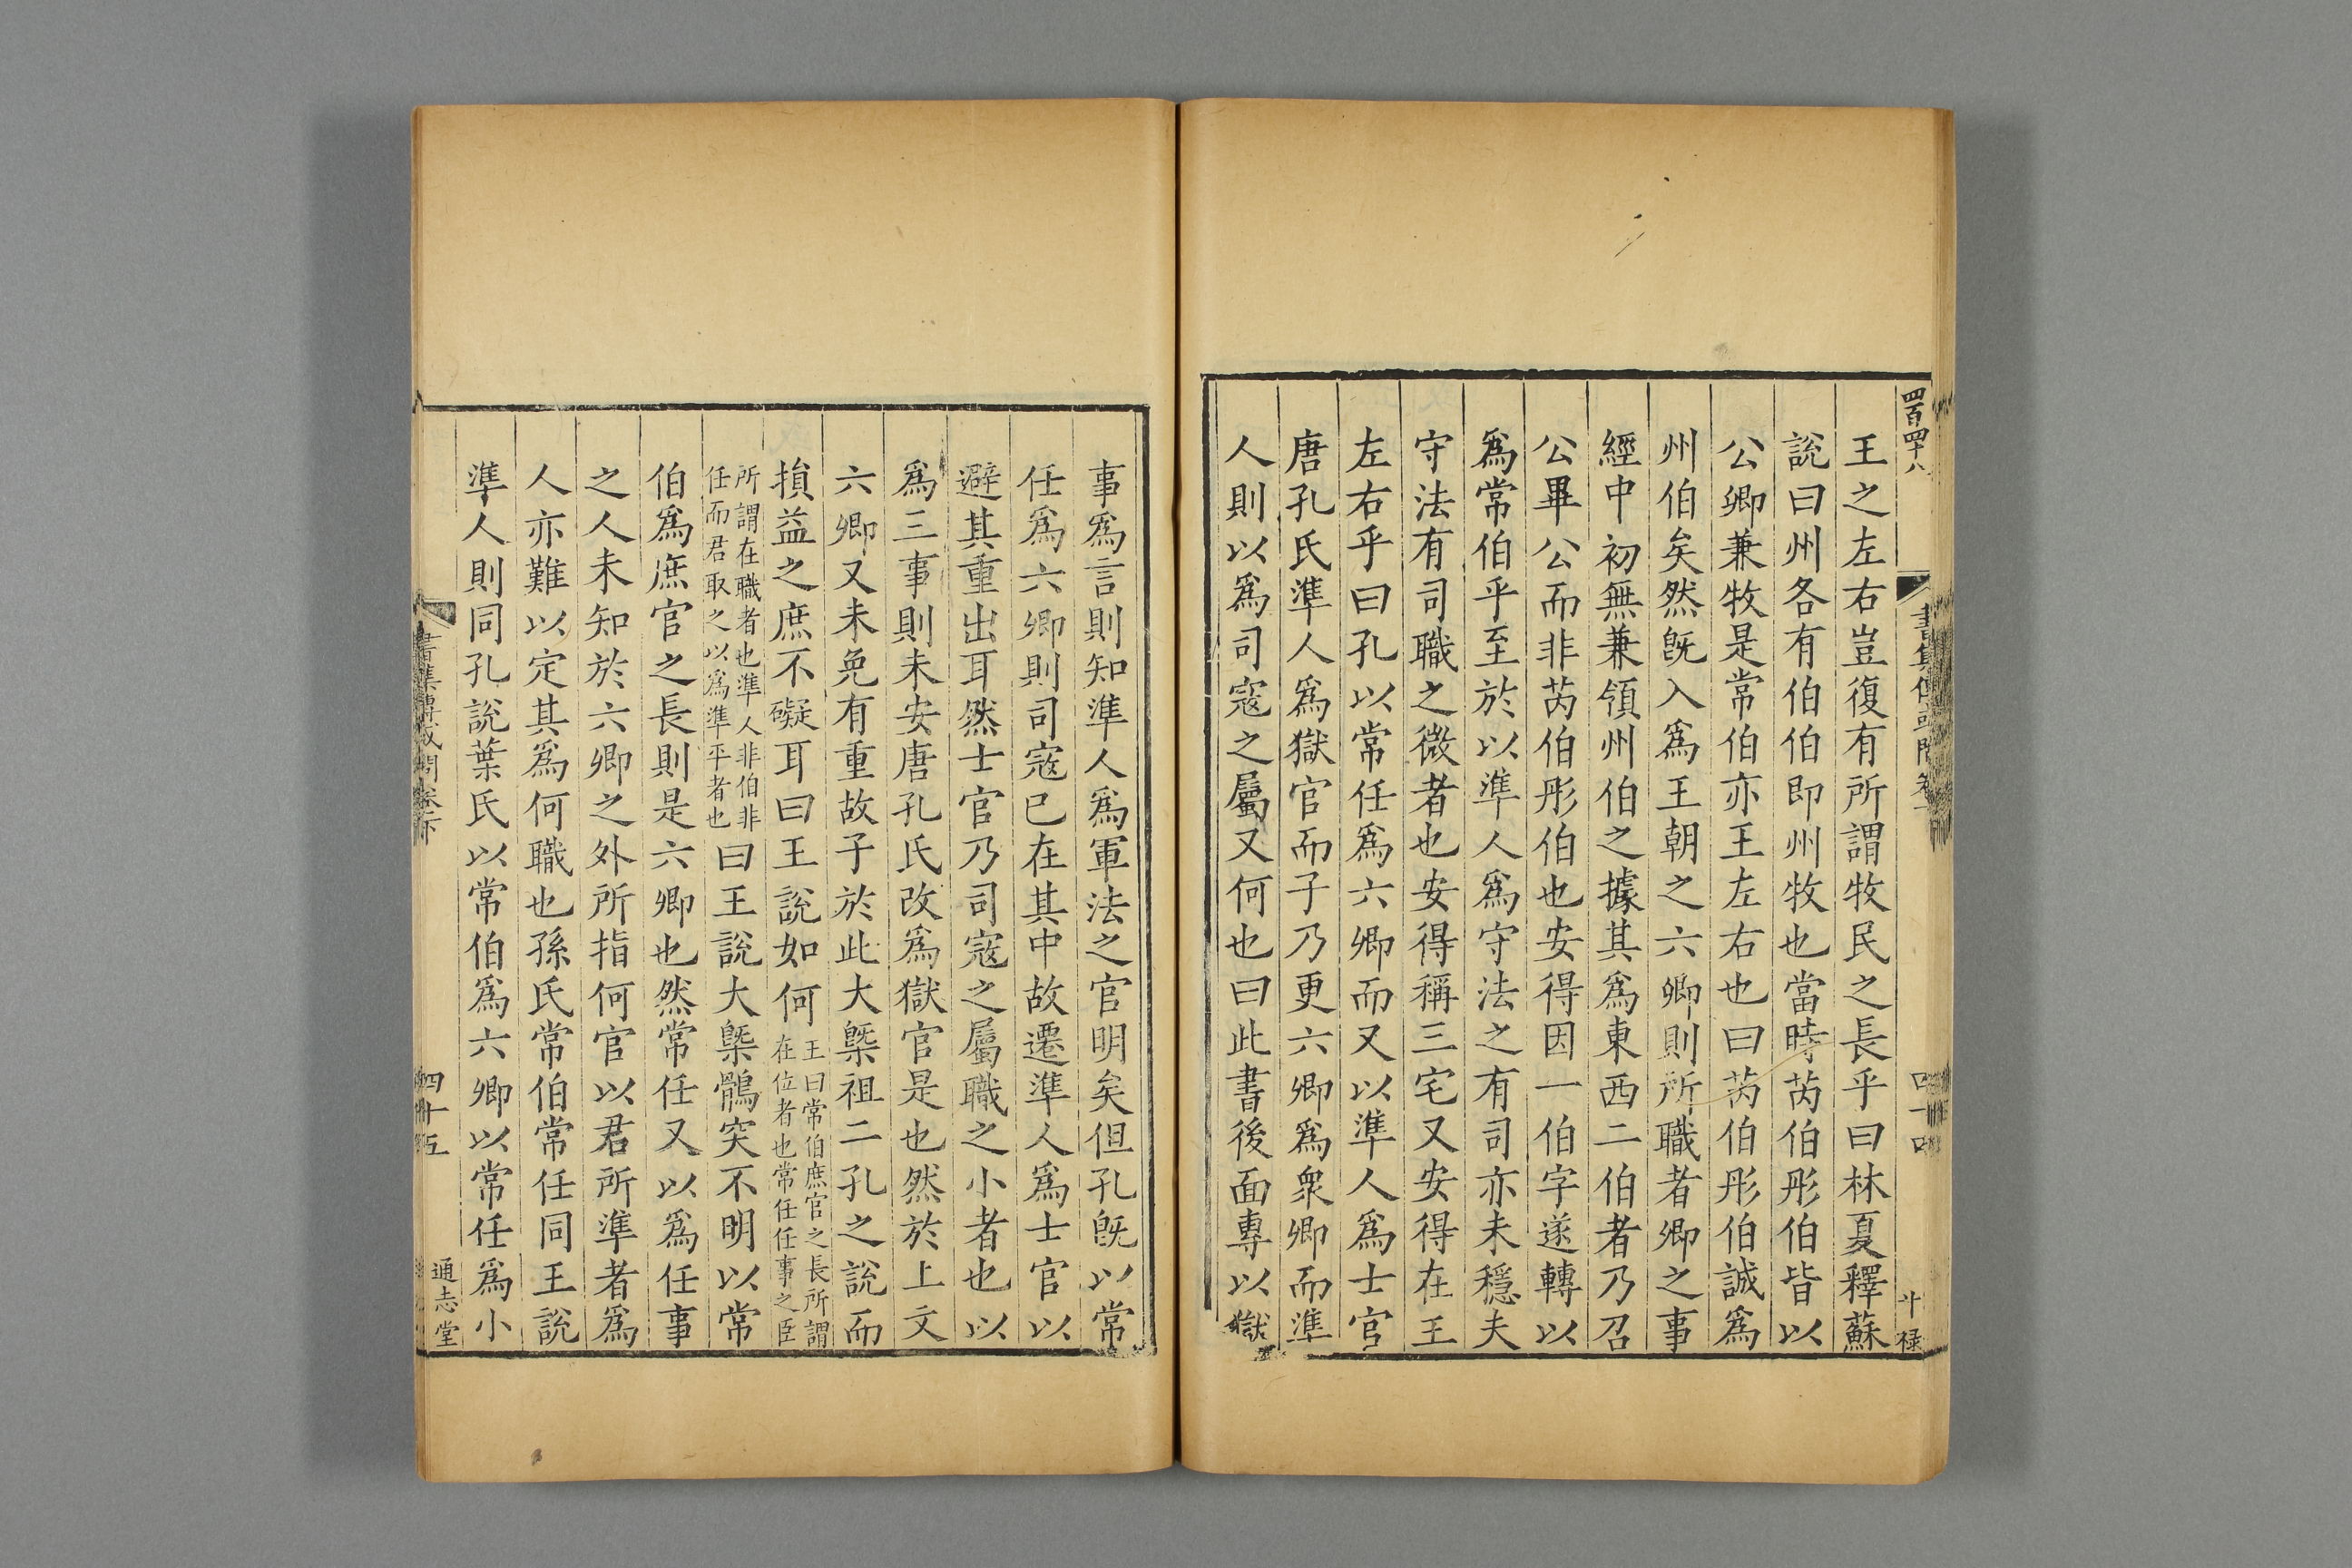 四百四十八
王之左右豈復有所謂牧民之長乎曰林夏釋蘇
說曰州各有伯伯即州牧也當時芮伯彤伯皆以
公卿兼牧是常伯亦王左右也曰芮伯彤伯誠爲
州伯矣然旣入爲王朝之六卿則所職者卿之事
經中初無兼領州伯之據其爲東西二伯者乃召
公畢公而非芮伯彤伯也安得因一伯字遂轉以
爲常伯乎至於以準人爲守法之有司亦未穩夫
守法有司職之微者也安得稱三宅又安得在王
左右乎曰孔以常任爲六卿而又以準人爲士官
唐孔氏準人爲獄官而子乃更六卿爲衆卿而準
人則以爲司寇之屬又何也曰此書後面專以獄
事爲言則知準人爲軍法之官明矣但孔旣以常
任爲六卿則司寇已在其中故遷準人爲士官以
避其重出耳然士官乃司寇之屬職之小者也以
爲三事則未安唐孔氏改爲獄官是也然於上文
六卿又未免有重故子於此大槩祖二孔之說而
損益之庶不礙耳曰王說如何
王曰常伯庶官之長所謂
在位者也常任任事之臣
所謂在職者也準人非伯非
任而君取之以爲準平者也
曰王說大槩鶻突不明以常
伯爲庶官之長則是六卿也然常任又以爲任事
之人未知於六卿之外所指何官以君所準者爲
人亦難以定其爲何職也孫氏常伯常任同王說
準人則同孔說葉氏以常伯爲六卿以常任爲小
書集傳或問卷下
四十五
通志堂